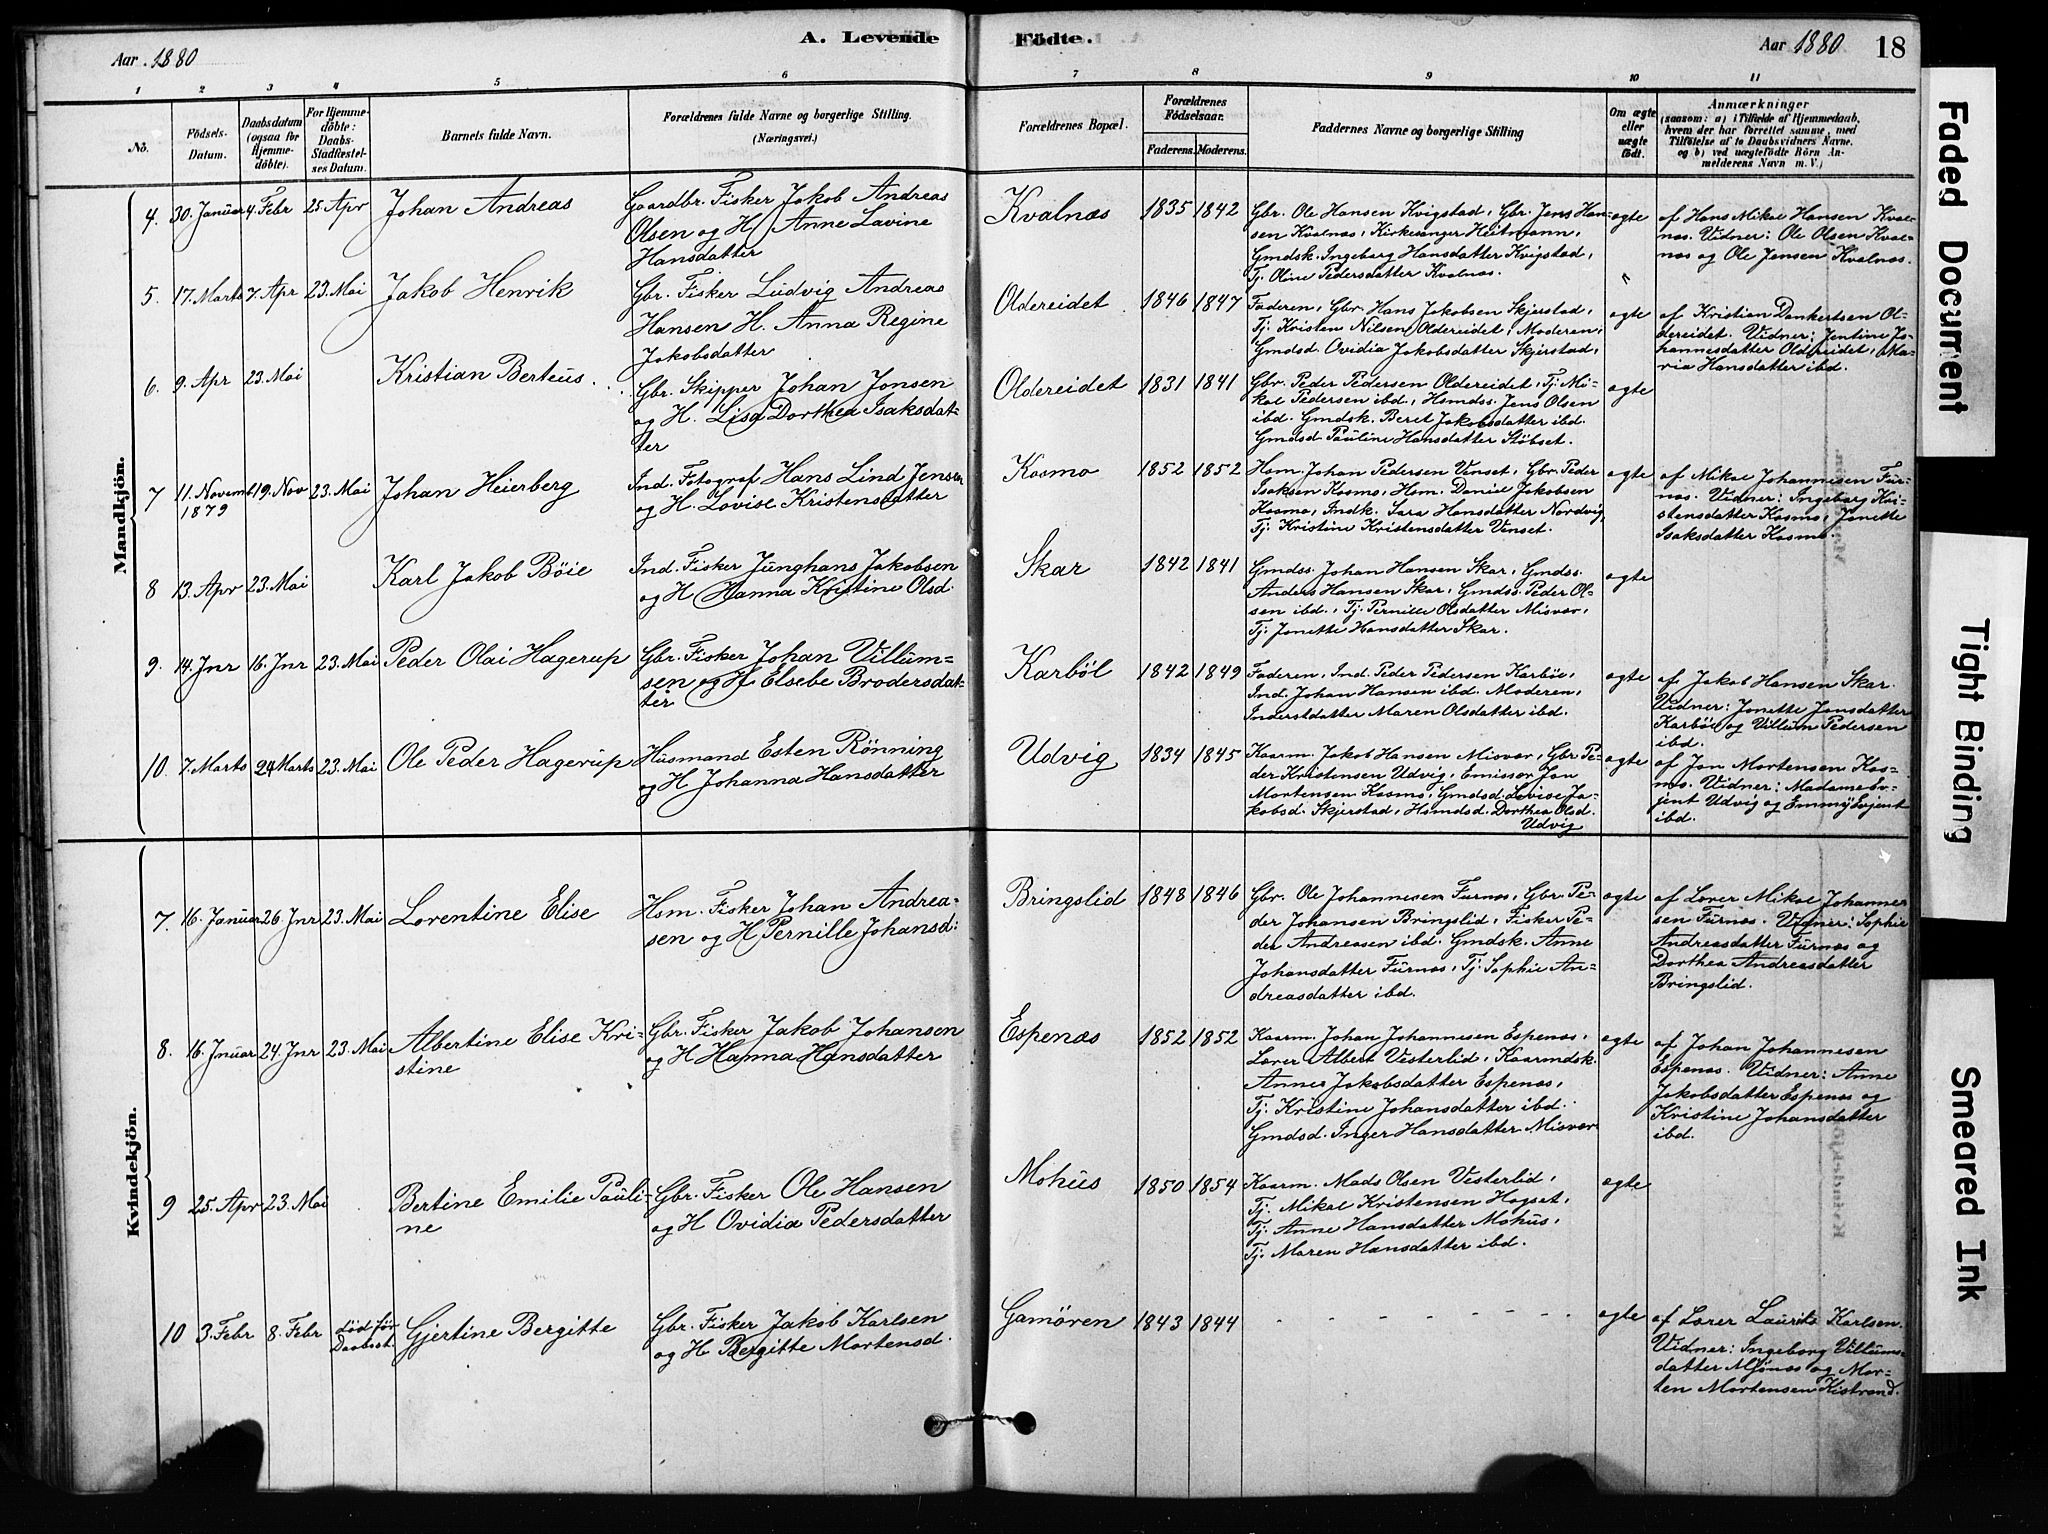 A. Levende
Födte.
Aar 1880
Aar 1880
18
1 2 3 4 5 6 7 8 9 10 11
No.
Födsels-Datum.
Daabsdatum (ogsaa for Hjemme-döbte).
For Hjemme-döbte: Daabs-Stadfæstel-ses Datum.
Barnets fulde Navn.
Forældrenes fulde Navne og borgerlige Stilling.
(Næringsvei.)
Forældrenes Bopæl.
Forældrenes Födselsaar.
Faderens. Moderens.
Faddernes Navne og borgerlige Stilling
Om ægte eller uægte födt.
Anmærkninger
(saasom: a) i Tilfælde af Hjemmedaab,
hvem der har forrettet samme, med
Tilföielse af to Daabsvidners Navne,
og b) ved uægtefödte Börn An-
melderens Navn m. V.)
Mandkjön.
4. 30. Januar 4. Febr 25 Apr Johan Andreas
Gaardbr. Fisker Jakob Andreas
Olsen og H. Anne Lavine
Hansdatter
Kvalnæs 1835 1842
Gbr. Ole Hansen Kvigstad, Gbr. Jens Han-
sen Kvalnæs, Kirkesanger Heitmann,
Gmdsk. Ingeborg Hansdatter Kvigstad,
Tj. Oline Pedersdatter Kvalnæs.
ægte
af Hans Mikal Hansen Kval-
næs. Vidner: Ole Olsen Kval-
næs og Ole Jensen Kvalnæs.
5. 17. Marts 7. Apr 23. Mai Jakob Henrik
Gbr. Fisker Ludvig Andreas
Hansen H. Anna Regine
Jakobsdatter
Oldereidet 1846 1847
Faderen, Gbr. Hans Jakobsen Skjerstad,
Tj. Kristen Nilsen Oldereidet, Moderen,
Gmdsd. Ovidia Jakobsdatter Skjerstad,
"
ægte
af Kristian Dankertsen Ol-
dereidet. Vidner: Jentine Jo-
hannesdatter Oldereidet, Ma-
ria Hansdatter ibd.
6. 9. Apr 23. Mai Kristian Berteus.
Gbr. Skipper Johan Jonsen
og H. Lisa Dorthea Isaksdat-
ter
Oldereidet 1831 1841
Gbr. Peder Pedersen Oldereidet, Tj. Mi-
kal Pedersen ibd., Hsmdss. Jens Olsen
ibd. Gmdsk. Beret Jakobsdatter ibd.
Gmdsd. Pauline Hansdatter Stöbset.
ægte
7 11. Novemb 1879 19. Nov 23. Mai Johan Heierberg
Ind. Fotograf Hans Lind Jensen
og H. Lovise Kristensdatter
Kosmo 1852 1852
Hsm. Johan Pedersen Venset, Gbr. Peder
Isaksen Kosmo, Hsm. Daniel Jakobsen
Kosmo, Indk. Sara Hansdatter Nordvig,
Tj. Kristine Kristensdatter Venset.
ægte
af Mikal Johannesen Fur-
næs. Vidner: Ingeborg Kri-
stensdatter Kosmo, Jonette
Isaksdatter Kosmo.
8 13. Apr 23. Mai Karl Jakob Böie
Ind. Fisker Junghans Jakobsen
og H Hanna Kristine Olsd.
Skar 1842 1841
Gmdss. Johan Hansen Skar, Gmdss.
Anders Hansen Skar, Gmdss. Peder Ol-
sen ibd., Tj. Pernille Olsdatter Misvær,
Tj. Jonette Hansdatter Skar.
ægte
9. 14. Jnr 16. Jnr 23. Mai Peder Olai Hagerup
Gbr. Fisker Johan Villum-
sen og H Elsebe Brodersdat-
ter
Karböl 1842 1849
Faderen, Ind. Peder Pedersen Karböl,
Ind. Johan Hansen ibd. Moderen,
Inderstdatter Maren Olsdatter ibd.
ægte
af Jakob Hansen Skar.
Vidner: Jonette Jonsdatter
Karböl og Villum Pedersen
ibd.
10. 7. Marts 24 Marts 23. Mai Ole Peder Hagerup
Husmand Esten Rönning
og H Johanna Hansdatter
Udvig 1834 1845
Kaarm. Jakob Hansen Misvær, Gbr. Pe-
der Kristensen Udvig, Emissær Jon
Mortensen Kosmo, Gmdsd. Lovise Ja-
kobsd. Skjerstad, Hsmdsd. Dorthea Olsd.
Udvig
ægte
af Jon Mortensen Kos-
mo. Vidner: Madame Ev-
jent Udvig og Emmy Evjent
ibd.
Kvindekjön.
7. 16. Januar 26. Jnr 23. Mai Lorentine Elise
Hsm. Fisker Johan Andrea-
sen og H Pernille Johansd:
Bringslid 1848 1846
Gbr. Ole Johannesen Furnæs, Gbr. Pe-
der Johansen Bringslid, Fisker Pe-
der Andreasen ibd. Gmdsk. Anne
Johansdatter Furnæs, Tj. Sophie An-
dreasdatter ibd.
ægte
af Lærer Mikal Johanne-
sen Furnæs. Vidner: Sophie
Andreasdatter Furnæs og
Dorthea Andreasdatter
Bringslid.
8. 16. Jnuar 24. Jnr 23. Mai Albertine Elise Kri-
stine
Gbr. Fisker Jakob Johansen
og H Hanna Hansdatter
Espenæs 1852 1852
Kaarm. Johan Johannesen Espenæs,
Lærer Albert Vesterlid, Kaarmdsk.
Anne Jakobsdatter Espenæs,
Tj. Kristine Johansdatter ibd.
Gmdsd. Inger Hansdatter Misvær
ægte
af Johan Johannesen
Espenæs. Vidner: Anne
Jakobsdatter Espenæs og
Kristine Johansdatter
ibd.
9 25. Apr 23. Mai Bertine Emilie Pauli-
ne
Gbr. Fisker Ole Hansen
og H Ovidia Pedersdatter
Mohus 1850 1854
Kaarm. Mads Olsen Vesterlid,
Tj. Mikal Kristensen Hogset,
Tj. Anne Hansdatter Mohus,
Tj. Maren Hansdatter ibd.
ægte
10 3. Febr 8. Febr död för Daabsst. Gjertine Bergitte
Gbr. Fisker Jakob Karlsen
og H Bergitte Mortensd.
Gamören 1843 1844
- - - - - - -
ægte
af Lærer Laurits Karlsen.
Vidner: Ingeborg Villums-
datter Mjönæs og Mor-
ten Mortensen Kistrand.
Faded Document
Tight Binding
Smeared Ink